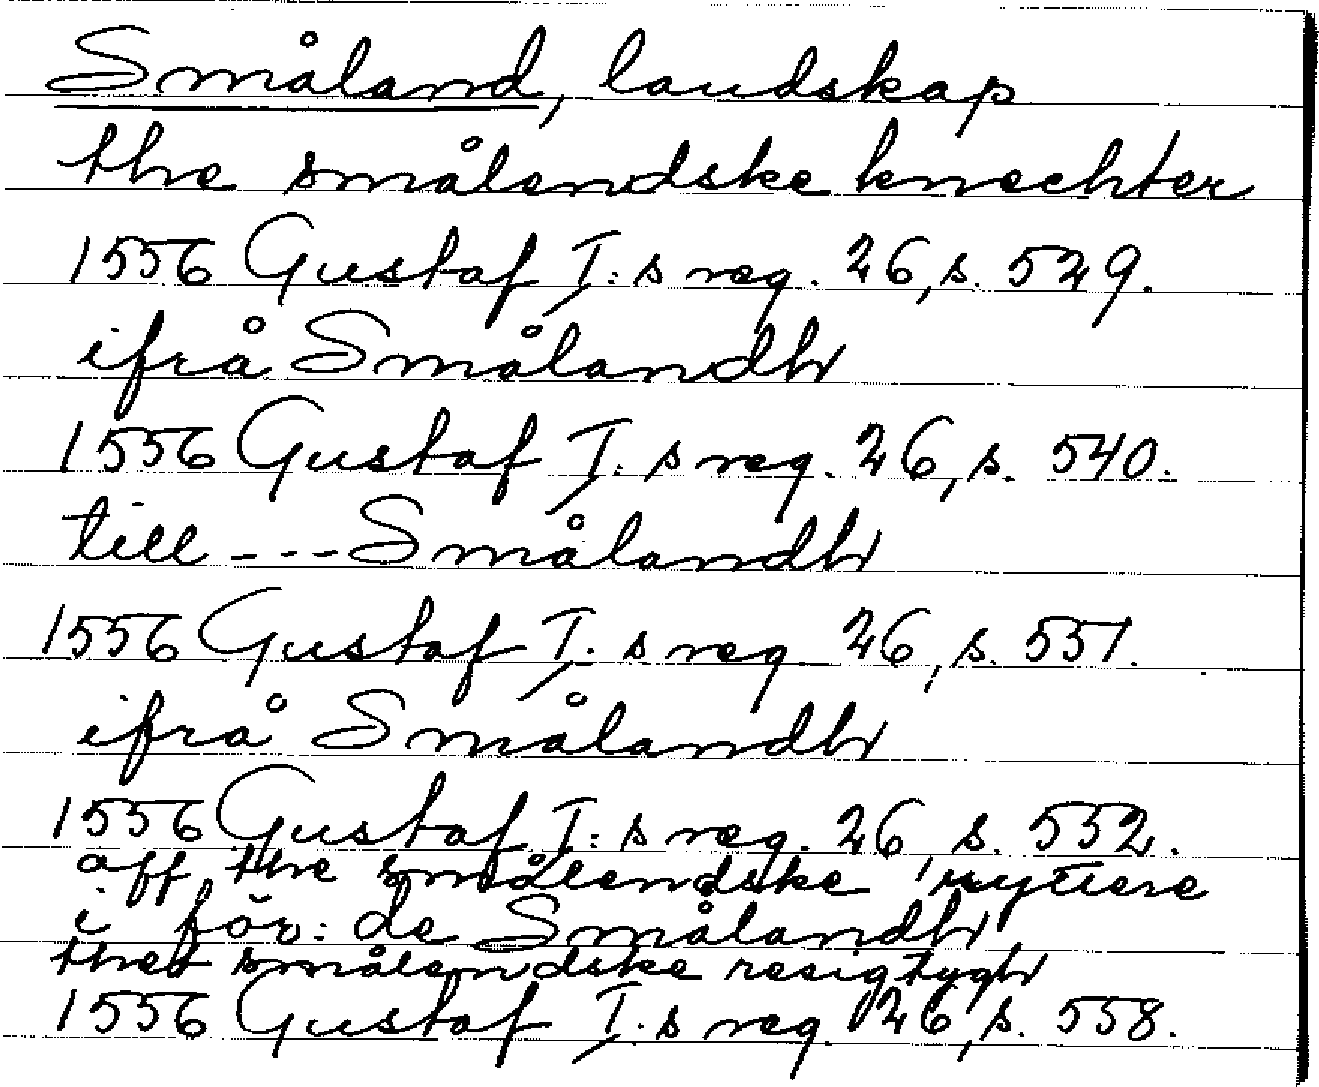 Småland, landskap
the smålendske knechter
1556 Gustaf I:s reg. 26, s. 529.
ifrå Smålandh
1556 Gustaf I:s reg. 26, s. 540.
till --- Smålandh
1556 Gustaf I:s reg 26, s. 551.
ifrå Smålandh
1556 Gustaf I:s reg. 26, s. 552.
aff the smålendske ryttere
i för:de Smålandh
thet smålendske resigtygh
1556 Gustaf I:s reg. 26, s. 558.